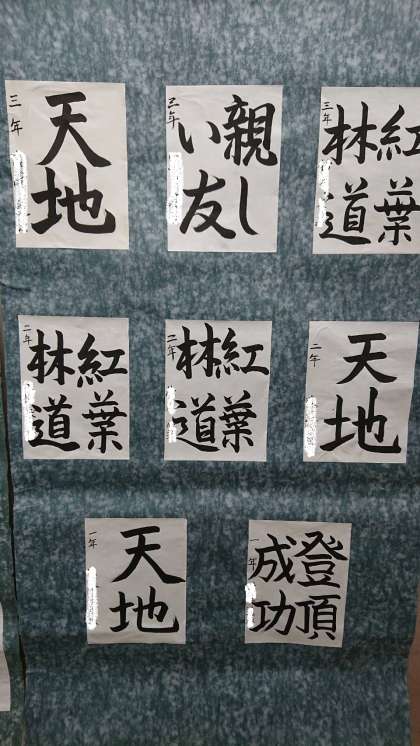 天地
三年
親し
い友
三年
紅葉
林道
三年
紅葉
林道
二年
紅葉
林道
二年
天地
二年
天地
一年
登頂
成功
一年